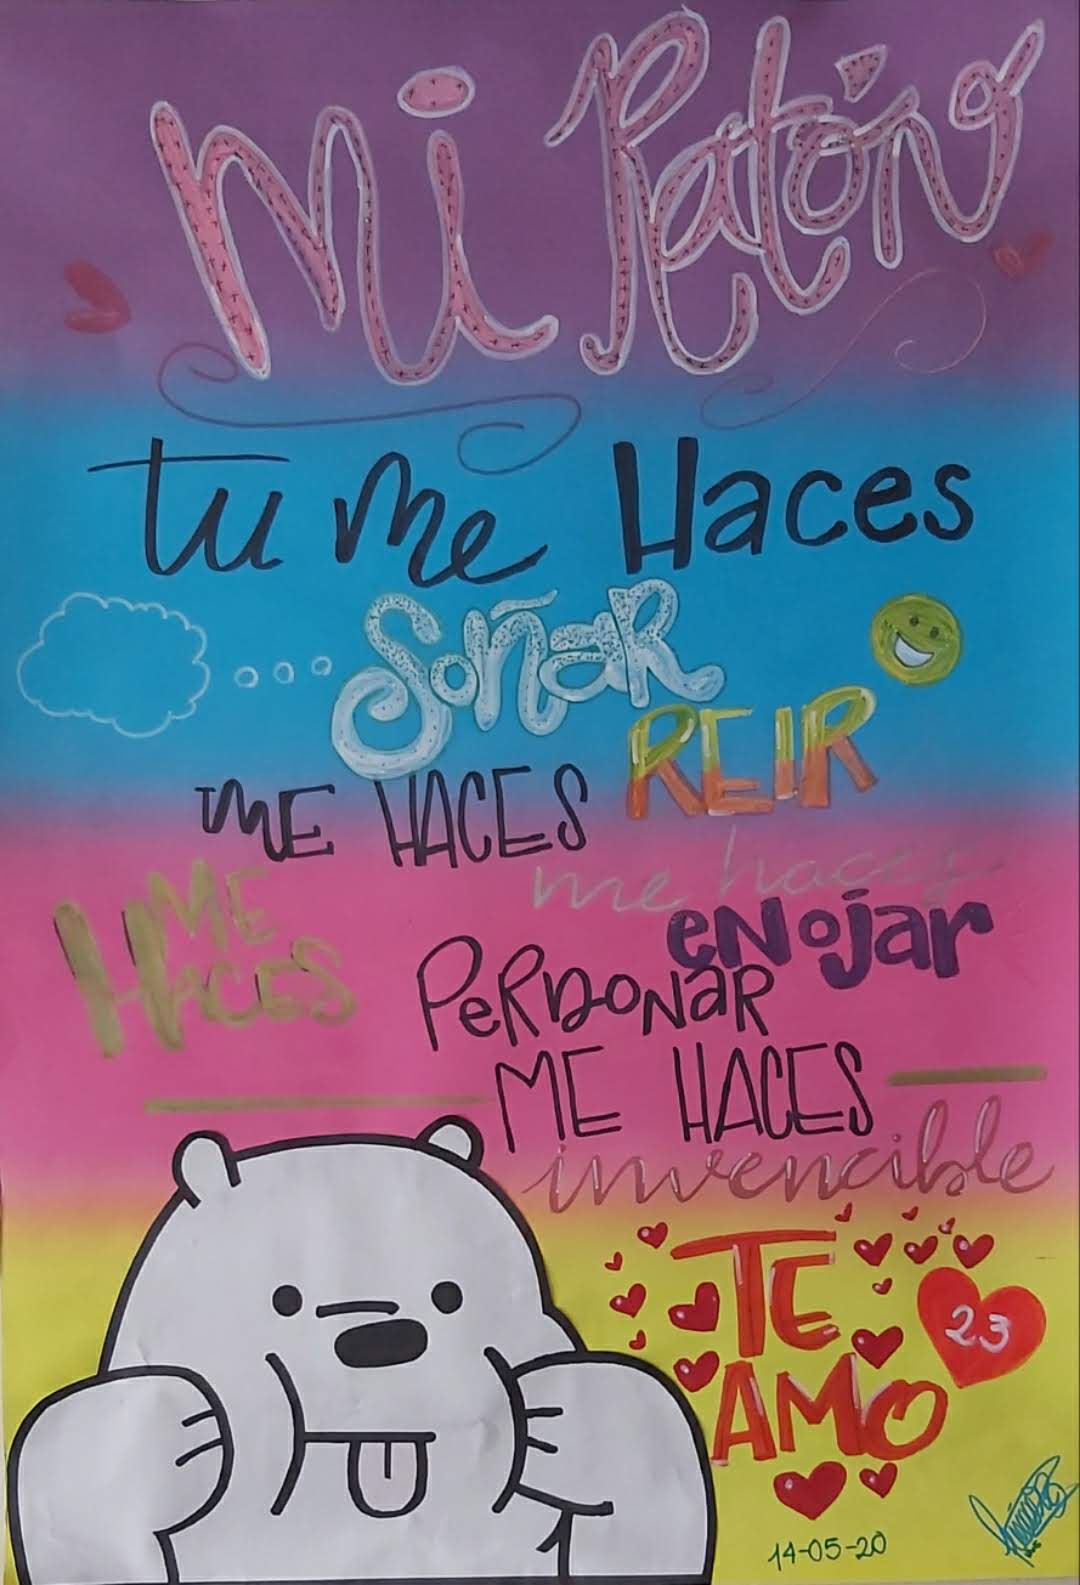 Mi Ratón
Tu me Haces
Soñar
ME HACES REIR
me haces
enojar
ME
HACES
PERDONAR
ME HACES
invencible
TE
AMO
23
14-05-20